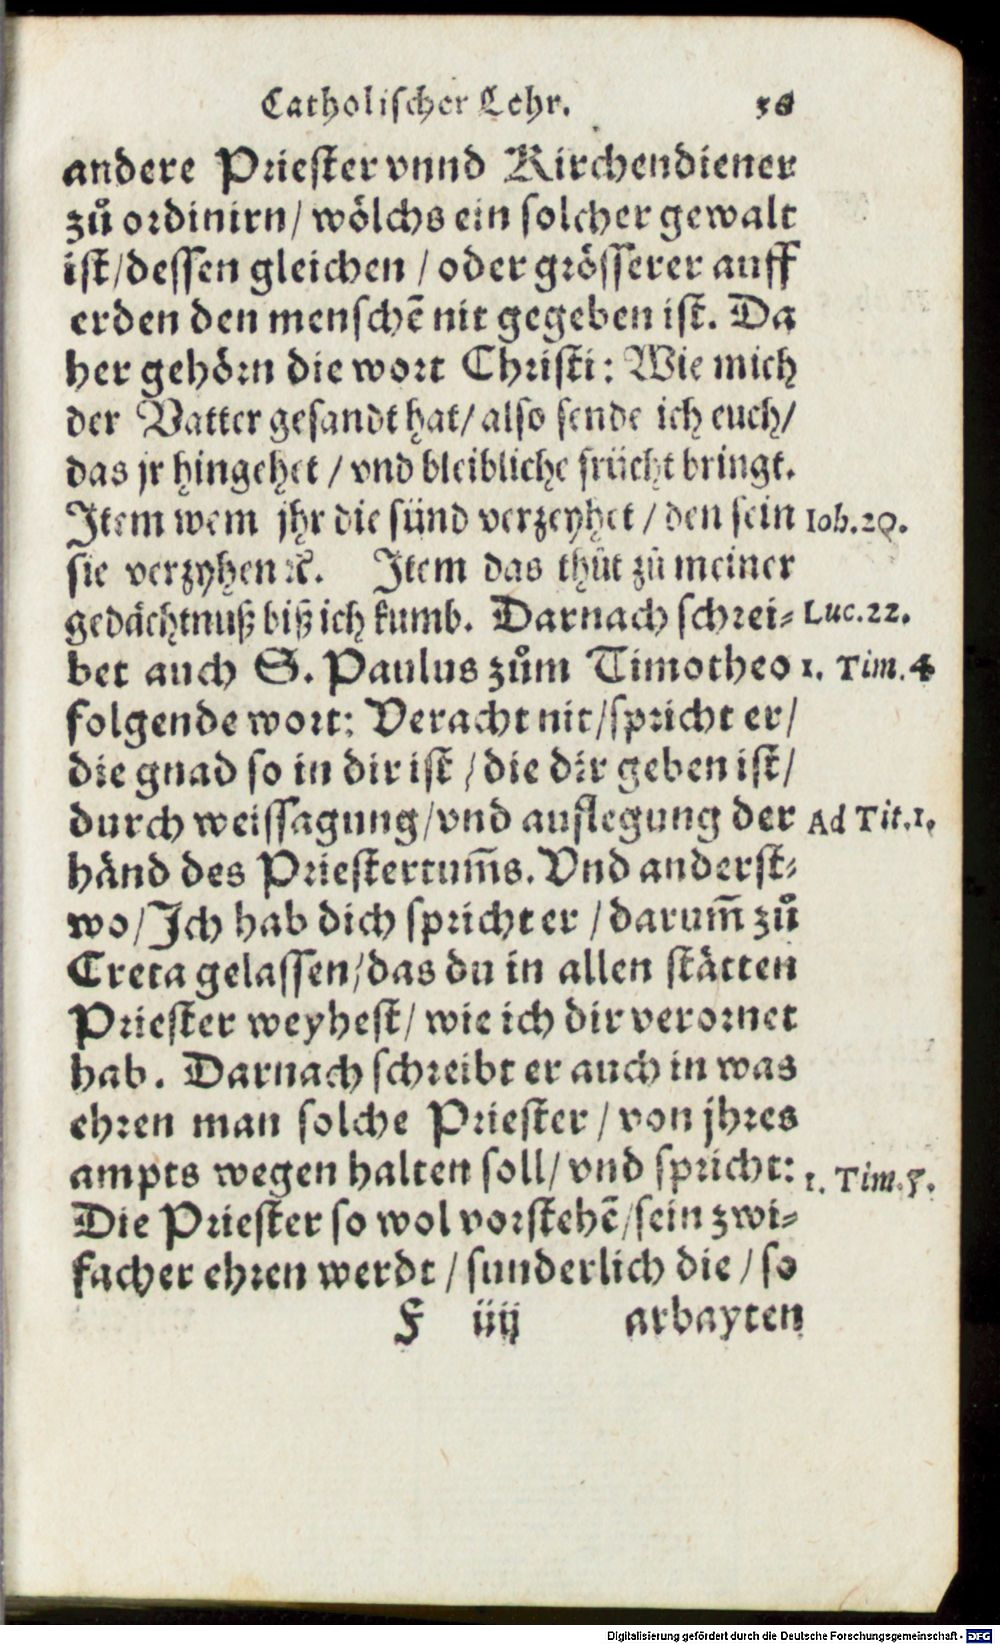 Catholischer Lehr. 58
andere Priester vnnd Kirchendiener
zuͦ ordinirn/ woͤlchs ein solcher gewalt
ist/dessen gleichen / oder groͤsserer auff
erden den menschē nit gegeben ist. Da
her gehoͤrn die wort Christi: Wie mich
der Vatter gesandt hat/ also sende ich euch/
das jr hingehet / vnd bleibliche fruͤcht bringt.
Item wem jhr die suͤnd verzeyhet / den sein Ioh.20.
sie verzyhen ꝛc̃. Item das thuͦt zuͦ meiner
gedaͤchtnuß biß ich kumb. Darnach schrei- Luc.22.
bet auch S. Paulus zuͦm Timotheo 1. Tim.4
folgende wort: Veracht nit/spricht er/
die gnad so in dir ist / die dir geben ist/
durch weissagung/vnd auflegung der Ad Tit.1.
haͤnd des Priestertum̃s. Vnd anderst-
wo/Ich hab dich spricht er / darum̃ zuͦ
Creta gelassen/das du in allen staͤtten
Priester weyhest/ wie ich dir verornet
hab. Darnach schreibt er auch in was
ehren man solche Priester / von jhres
ampts wegen halten soll/ vnd spricht: 1. Tim.5.
Die Priester so wol vorstehē/sein zwi-
facher ehren werdt / sunderlich die / so
F iiij arbayten
Digitalisierung gefördert durch die Deutsche Forschungsgemeinschaft - DFG